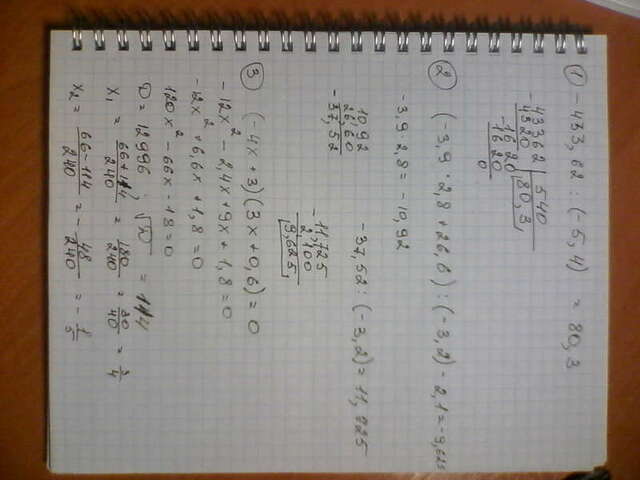 ① -433,62 : (-5,4) = 80,3
-43362 | 540
4320 | 80,3
-1620
1620
0
② (-3,9 · 2,8 + 26,6) : (-3,2) - 2,1 = -9,625
-3,9 · 2,8 = -10,92
1092
2660
-37,52
-37,52 : (-3,2) = 11,725
-11,725
2,100
9,625
③ (-4x + 3)(3x + 0,6) = 0
-12x² - 2,4x + 9x + 1,8 = 0
-12x² + 6,6x + 1,8 = 0
120x² - 66x - 18 = 0
D = 12996; √D = 114
x₁ = (66 + 114)/240 = 180/240 = 30/40 = 3/4
x₂ = (66 - 114)/240 = -48/240 = -1/5